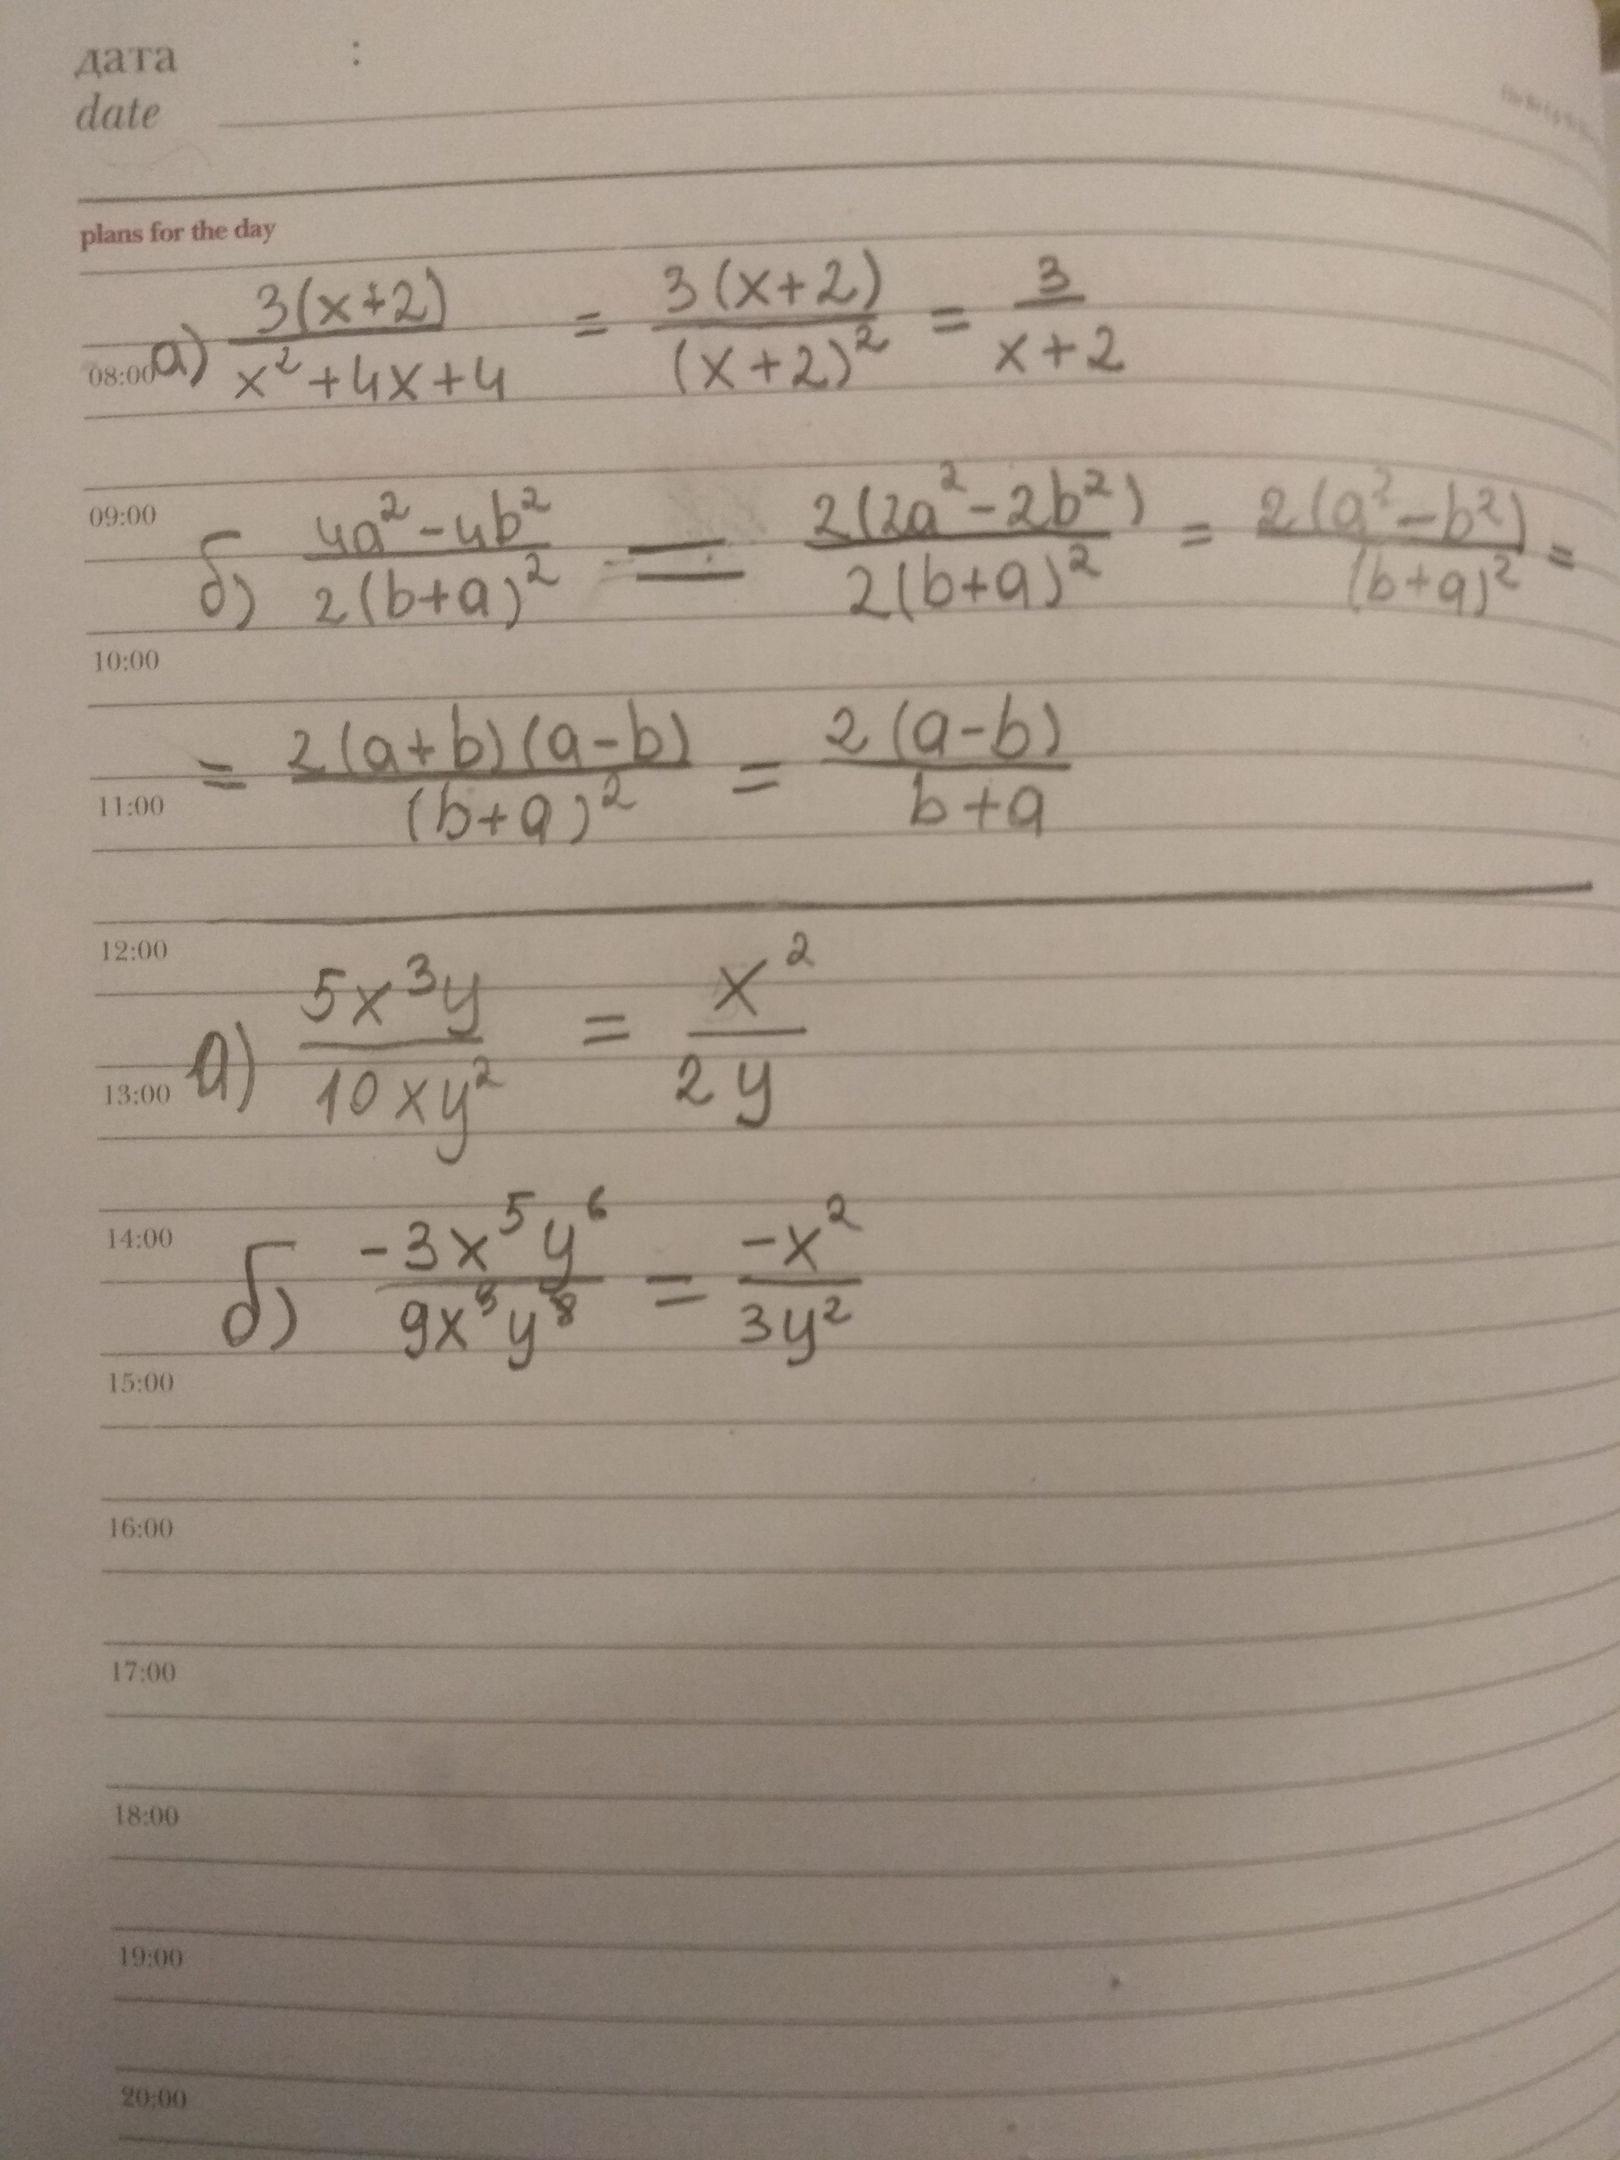 дата :
date
plans for the day
08:00 а) 3(x+2)/(x²+4x+4) = 3(x+2)/(x+2)² = 3/(x+2)
09:00
б) (4a²-4b²)/(2(b+a)²) = 2(2a²-2b²)/(2(b+a)²) = 2(a²-b²)/(b+a)² =
10:00
= 2(a+b)(a-b)/(b+a)² = 2(a-b)/(b+a)
11:00
12:00
а) 5x³y/(10xy²) = x²/(2y)
13:00
14:00
б) -3x⁵y⁶/(9x³y⁸) = -x²/(3y²)
15:00
16:00
17:00
18:00
19:00
20:00